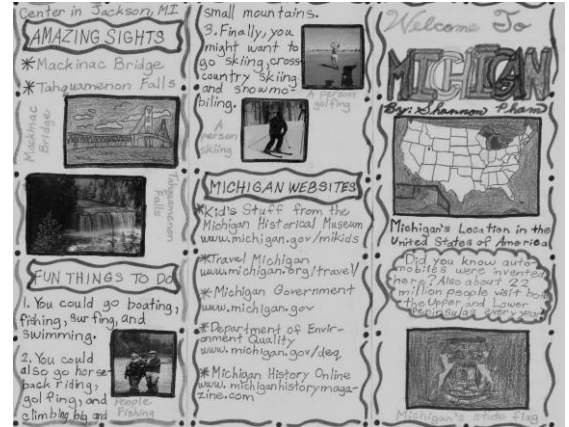 Center in Jackson, MI
AMAZING SIGHTS
*Mackinac Bridge
*Tahquamenon Falls
Mackinac
Bridge
Tahquamenon
Falls
FUN THINGS TO DO
1. You could go boating,
fishing, surfing, and
swimming.
2. You could
also go horse-
back riding,
golfing, and
climbing big and
People
Fishing
small mountains.
3. Finally, you
might want to
go skiing, cross-
country skiing
and snowmo-
biling.
A person
golfing
A
person
skiing
MICHIGAN WEBSITES
*Kid's Stuff from the
Michigan Historical Museum
www.michigan.gov/mikids
*Travel Michigan
www.michigan.org/travel/
*Michigan Government
www.michigan.gov
*Department of Envir-
onment Quality
www.michigan.gov/deq
*Michigan History Online
www.michiganhistorymaga-
zine.com
Welcome To
MICHIGAN
By: Shannon Pham
Michigan's Location in the
United States of America
Did you know auto-
mobiles were invented
here? Also about 22
million people visit both
the Upper and Lower
Peninsulas every year!
Michigan's state flag